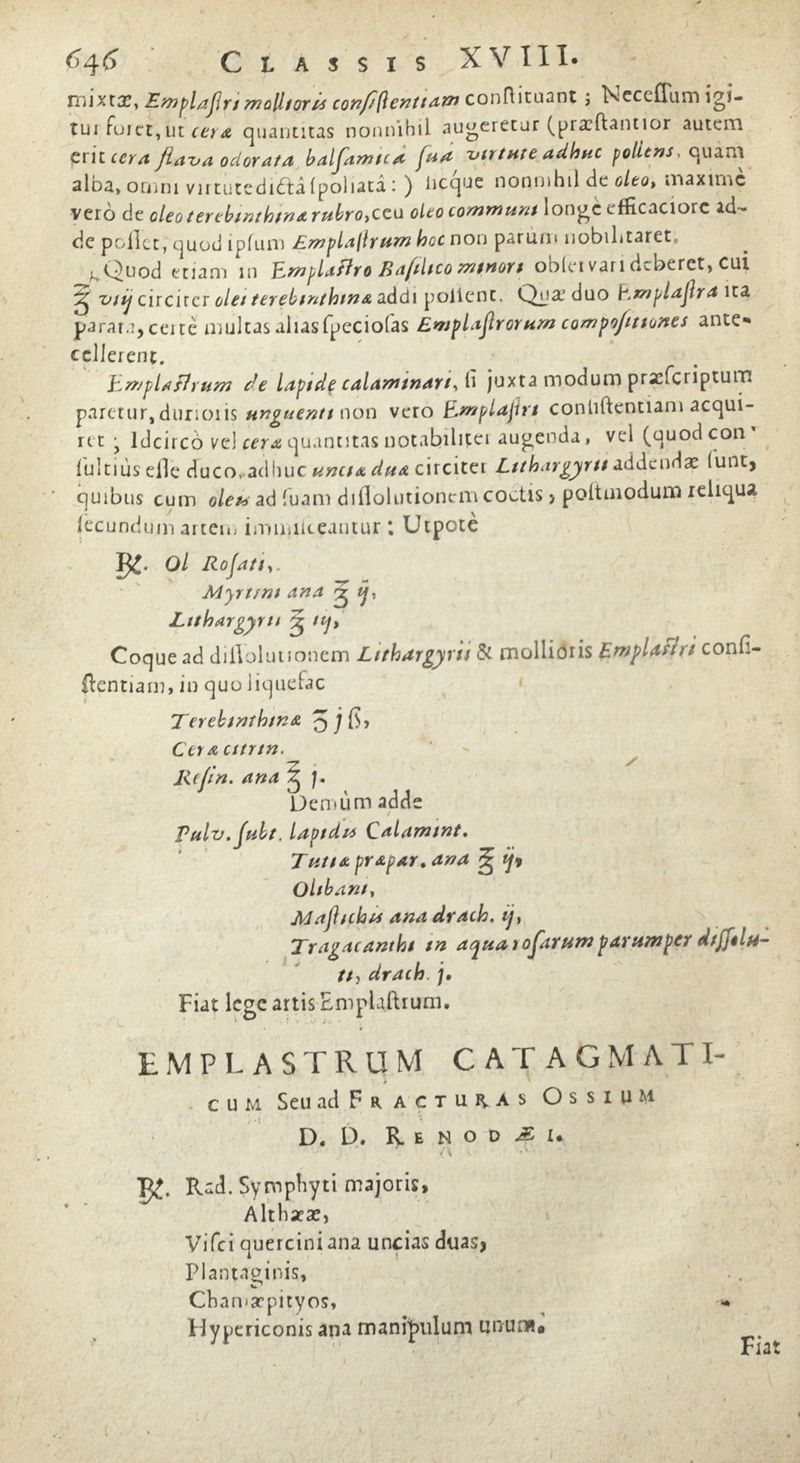 646 CLASSIS XVIII.
mixtæ, Emplaſtri mollioris conſiſtentiam conſtituant ; Neceſſum igi-
tur foret, ut ceræ quantitas nonnihil augeretur (præſtantior autem
erit cera flava odorata balſamica ſua virtute adhuc pollens, quam
alba, omni virtute dictâ ſpoliatâ: ) ſicque nonnihil de oleo, maximè
verò de oleo terebinthinæ rubro, ceu oleo communi longè efficaciore ad-
de pollet, quod ipſum Emplaſtrum hoc non parùm nobilitaret.
Quod etiam in Emplaſtro Baſilico minori obſervari deberet, cui
℥ viij circiter olei terebinthinæ addi poſſent. Quæ duo Emplaſtra ita
parata, certè multas alias ſpecioſas Emplaſtrorum compoſitiones ante-
cellerent.
Emplaſtrum de lapide calaminari, ſi juxta modum præſcriptum
paretur, durioris unguenti non vero Emplaſtri conſiſtentiam acqui-
ret ; Idcircò vel ceræ quantitas notabiliter augenda, vel (quod con-
ſultiùs eſſe duco, adhuc unciæ duæ circiter Lithargyrii addendæ ſunt,
quibus cum oleis ad ſuam diſſolutionem coctis, poſtmodum reliqua
ſecundum artem immiſceantur : Utpotè
℞. Ol Roſati,.
Myrtini ana ℥ ij,
Lithargyrii ℥ iij,
Coque ad diſſolutionem Lithargyrii & mollioris Emplaſtri conſi-
ſtentiam, in quo liquefac
Terebinthinæ ℥ j ß,
Ceræ citrin.
Reſin. ana ℥ j.
Demùm adde
Pulv. ſubt. lapidis Calamint.
Tutiæ præpar. ana ℥ ij,
Olibani,
Maſtichis ana drach. ij,
Tragacanthi in aqua roſarum parumper diſſolu-
ti, drach. j.
Fiat lege artis Emplaſtrum.
EMPLASTRUM CATAGMATI-
CUM Seu ad FRACTURAS OSSIUM
D. D. RENODÆI.
℞. Rad. Symphyti majoris,
Althææ,
Viſci quercini ana uncias duas,
Plantaginis,
Chamæpityos,
Hypericonis ana manipulum unum.
Fiat